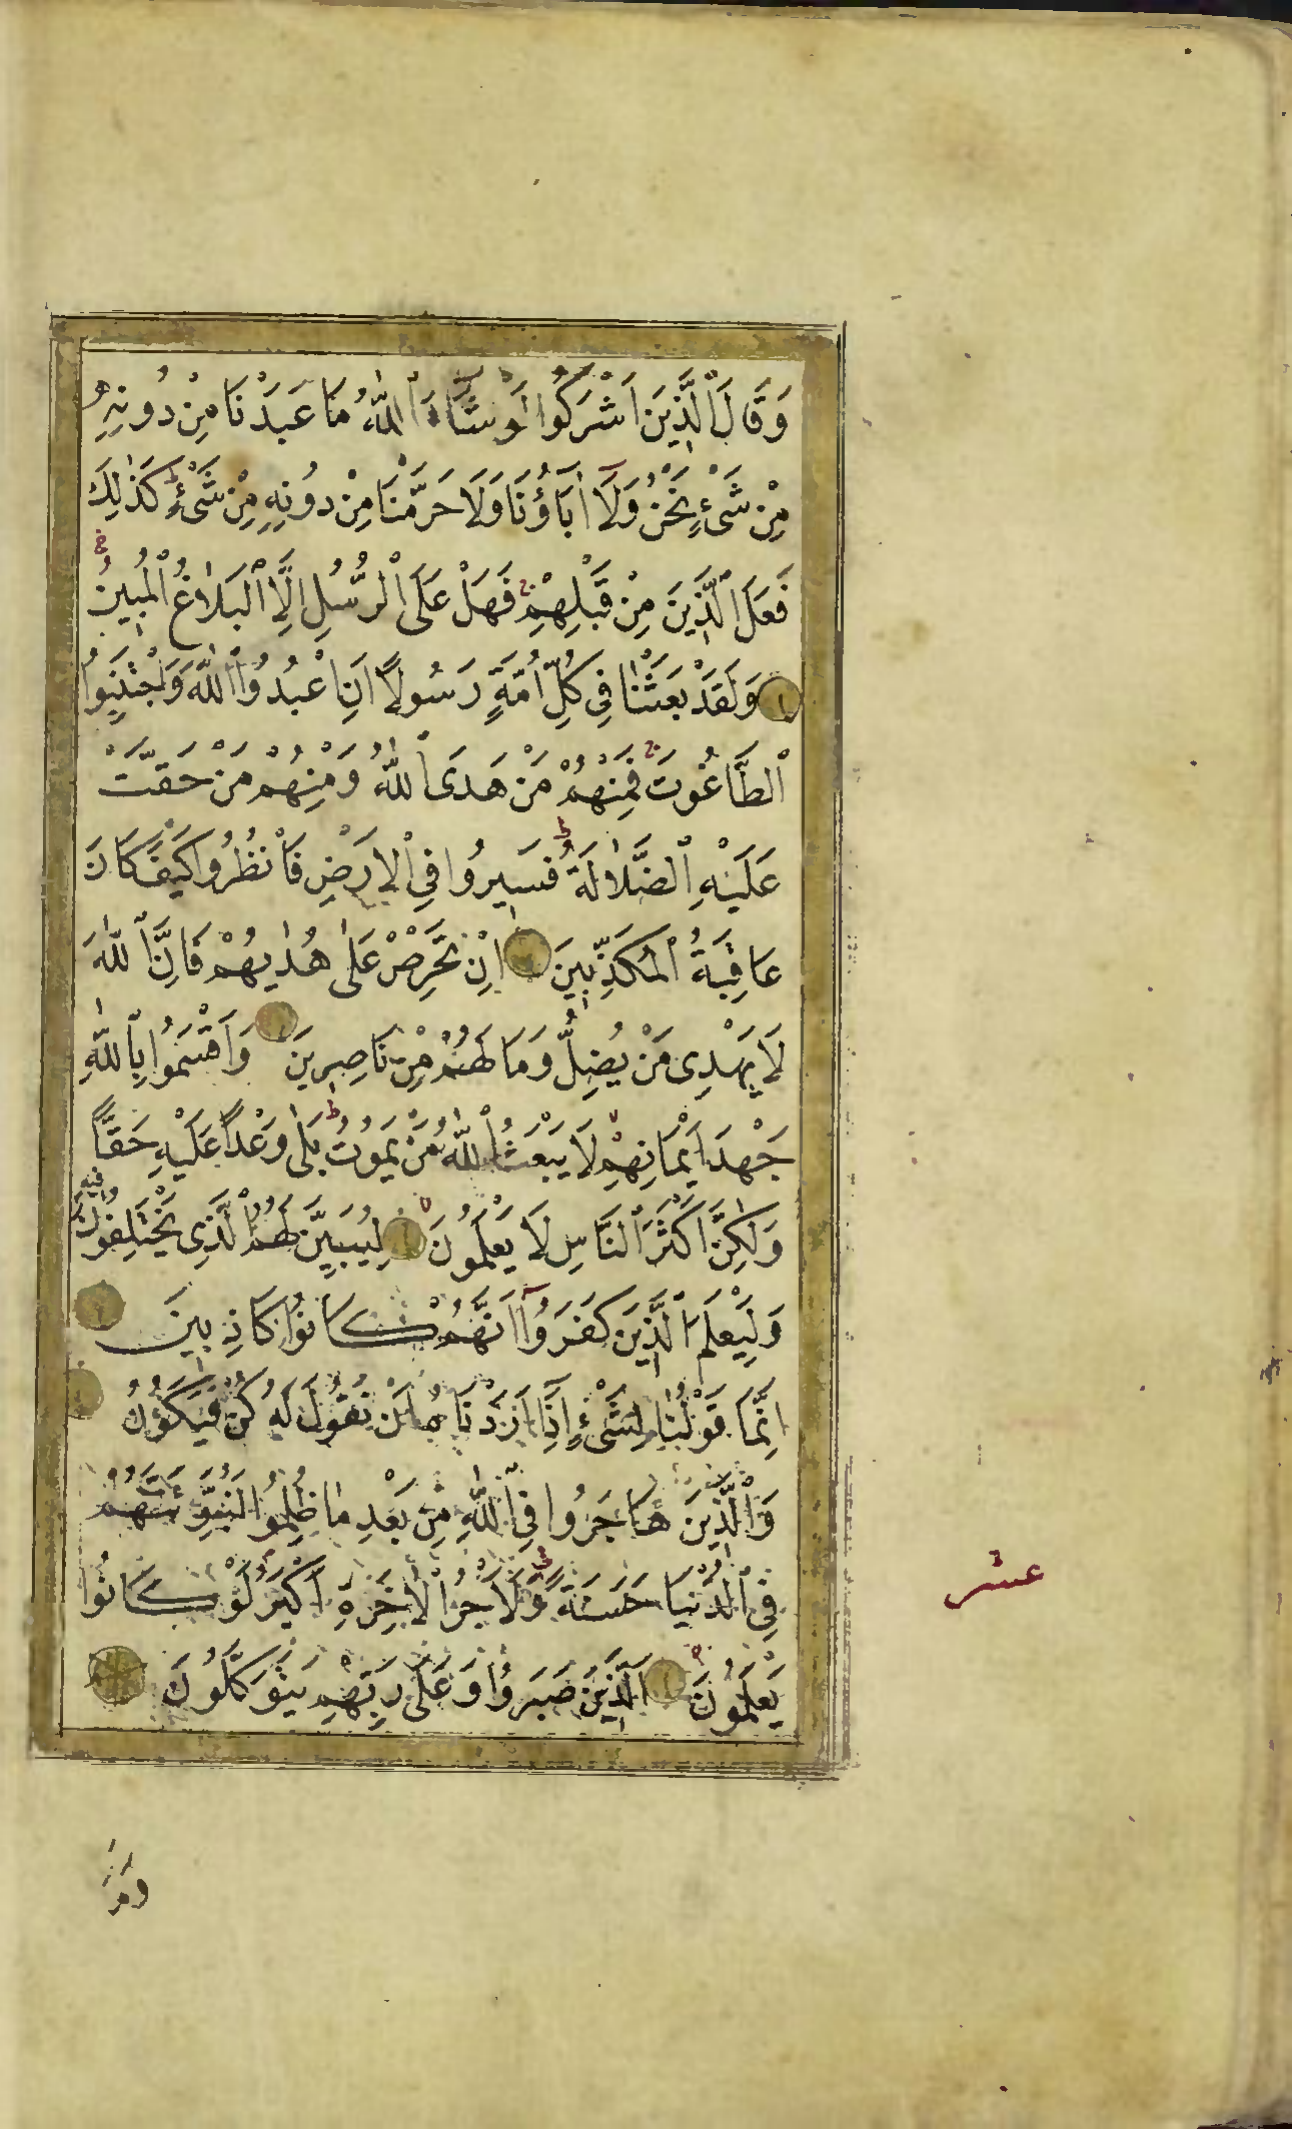 وَقَالَ ٱلَّذِينَ اَشْرَكُوا لَوْ شَٓاءَ ٱللّٰهُ مَا عَبَدْنَا مِنْ دُونِهِ
مِنْ شَىْءٍ نَحْنُ وَلَٓا اٰبَٓاؤُنَا وَلَا حَرَّمْنَا مِنْ دُونِهِ مِنْ شَىْءٍ كَذٰلِكَ
فَعَلَ ٱلَّذِينَ مِنْ قَبْلِهِمْ فَهَلْ عَلَى ٱلرُّسُلِ اِلَّا ٱلْبَلَاغُ ٱلْمُبِينُ
وَلَقَدْ بَعَثْنَا فِى كُلِّ اُمَّةٍ رَسُولًا اَنِ اعْبُدُوا ٱللّٰهَ وَٱجْتَنِبُوا
ٱلطَّاغُوتَ فَمِنْهُمْ مَنْ هَدَى ٱللّٰهُ وَمِنْهُمْ مَنْ حَقَّتْ
عَلَيْهِ ٱلضَّلَالَةُ فَسِيرُوا فِى ٱلْاَرْضِ فَانْظُرُوا كَيْفَ كَانَ
عَاقِبَةُ ٱلْمُكَذِّبِينَ اِنْ تَحْرِصْ عَلٰى هُدٰيهُمْ فَاِنَّ ٱللّٰهَ
لَا يَهْدِى مَنْ يُضِلُّ وَمَا لَهُمْ مِنْ نَاصِرِينَ وَاَقْسَمُوا بِٱللّٰهِ
جَهْدَ اَيْمَانِهِمْ لَا يَبْعَثُ ٱللّٰهُ مَنْ يَمُوتُ بَلٰى وَعْدًا عَلَيْهِ حَقًّا
وَلٰكِنَّ اَكْثَرَ ٱلنَّاسِ لَا يَعْلَمُونَ لِيُبَيِّنَ لَهُمُ ٱلَّذِى يَخْتَلِفُونَ فِيهِ
وَلِيَعْلَمَ ٱلَّذِينَ كَفَرُٓوا اَنَّهُمْ كَانُوا كَاذِبِينَ
اِنَّمَا قَوْلُنَا لِشَىْءٍ اِذَٓا اَرَدْنَاهُ اَنْ نَقُولَ لَهُ كُنْ فَيَكُونُ
وَٱلَّذِينَ هَاجَرُوا فِى ٱللّٰهِ مِنْ بَعْدِ مَا ظُلِمُوا لَنُبَوِّئَنَّهُمْ
فِى ٱلدُّنْيَا حَسَنَةً وَلَاَجْرُ ٱلْاٰخِرَةِ اَكْبَرُ لَوْ كَانُوا
يَعْلَمُونَ اَلَّذِينَ صَبَرُوا وَعَلٰى رَبِّهِمْ يَتَوَكَّلُونَ
عشر
وَمَٓا